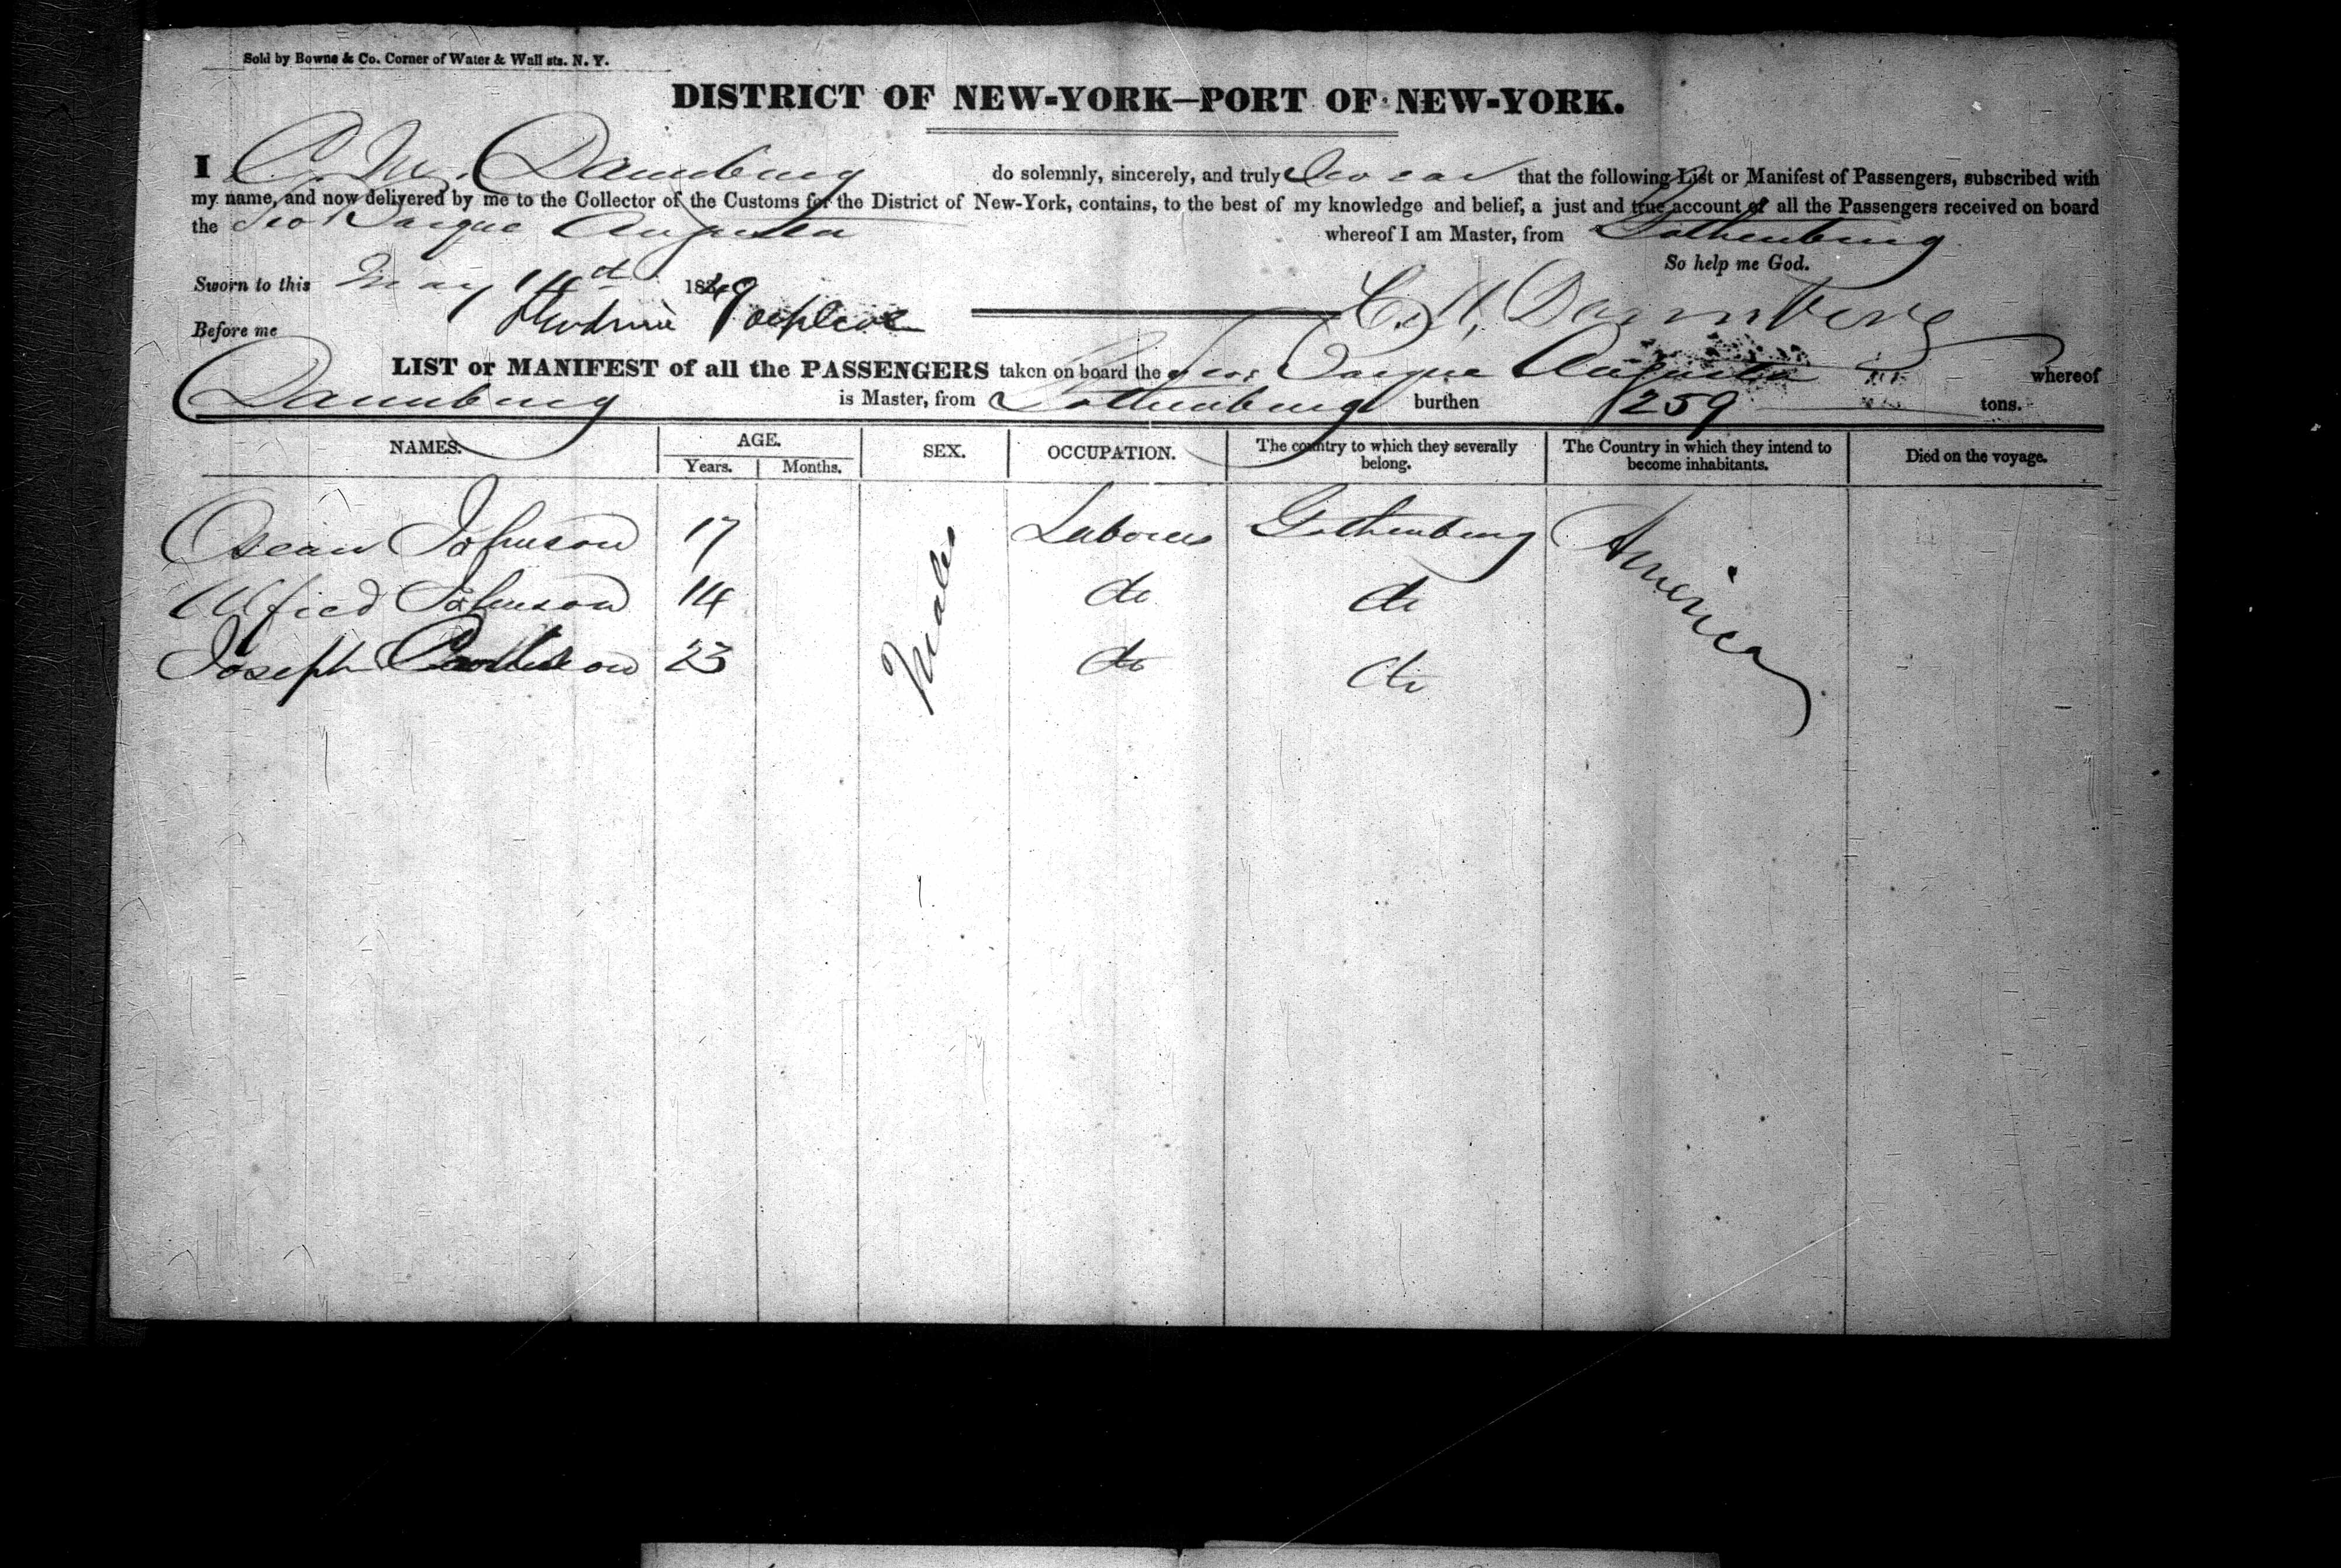 Sold by Bowne & Co. Corner of Water & Wall sts. N. Y.
DISTRICT OF NEW-YORK—PORT OF NEW-YORK.
I C. M. Dannberg do solemnly, sincerely, and truly swear that the following List or Manifest of Passengers, subscribed with
my name, and now delivered by me to the Collector of the Customs for the District of New-York, contains, to the best of my knowledge and belief, a just and true account of all the Passengers received on board
the Barque Augusta whereof I am Master, from Gothenburg
So help me God.
Sworn to this May 14 1849
C. M. Dannberg
Before me
LIST or MANIFEST of all the PASSENGERS taken on board the Barque Augusta whereof
Dannberg is Master, from Gothenburg burthen 259 tons.
NAMES. AGE. SEX. OCCUPATION. The country to which they severally belong. The Country in which they intend to become inhabitants. Died on the voyage.
Years. Months.
Oscar Johnson 17 Males Laborers Gothenburg America
Alfred Johnson 14 do do
Joseph 23 do do